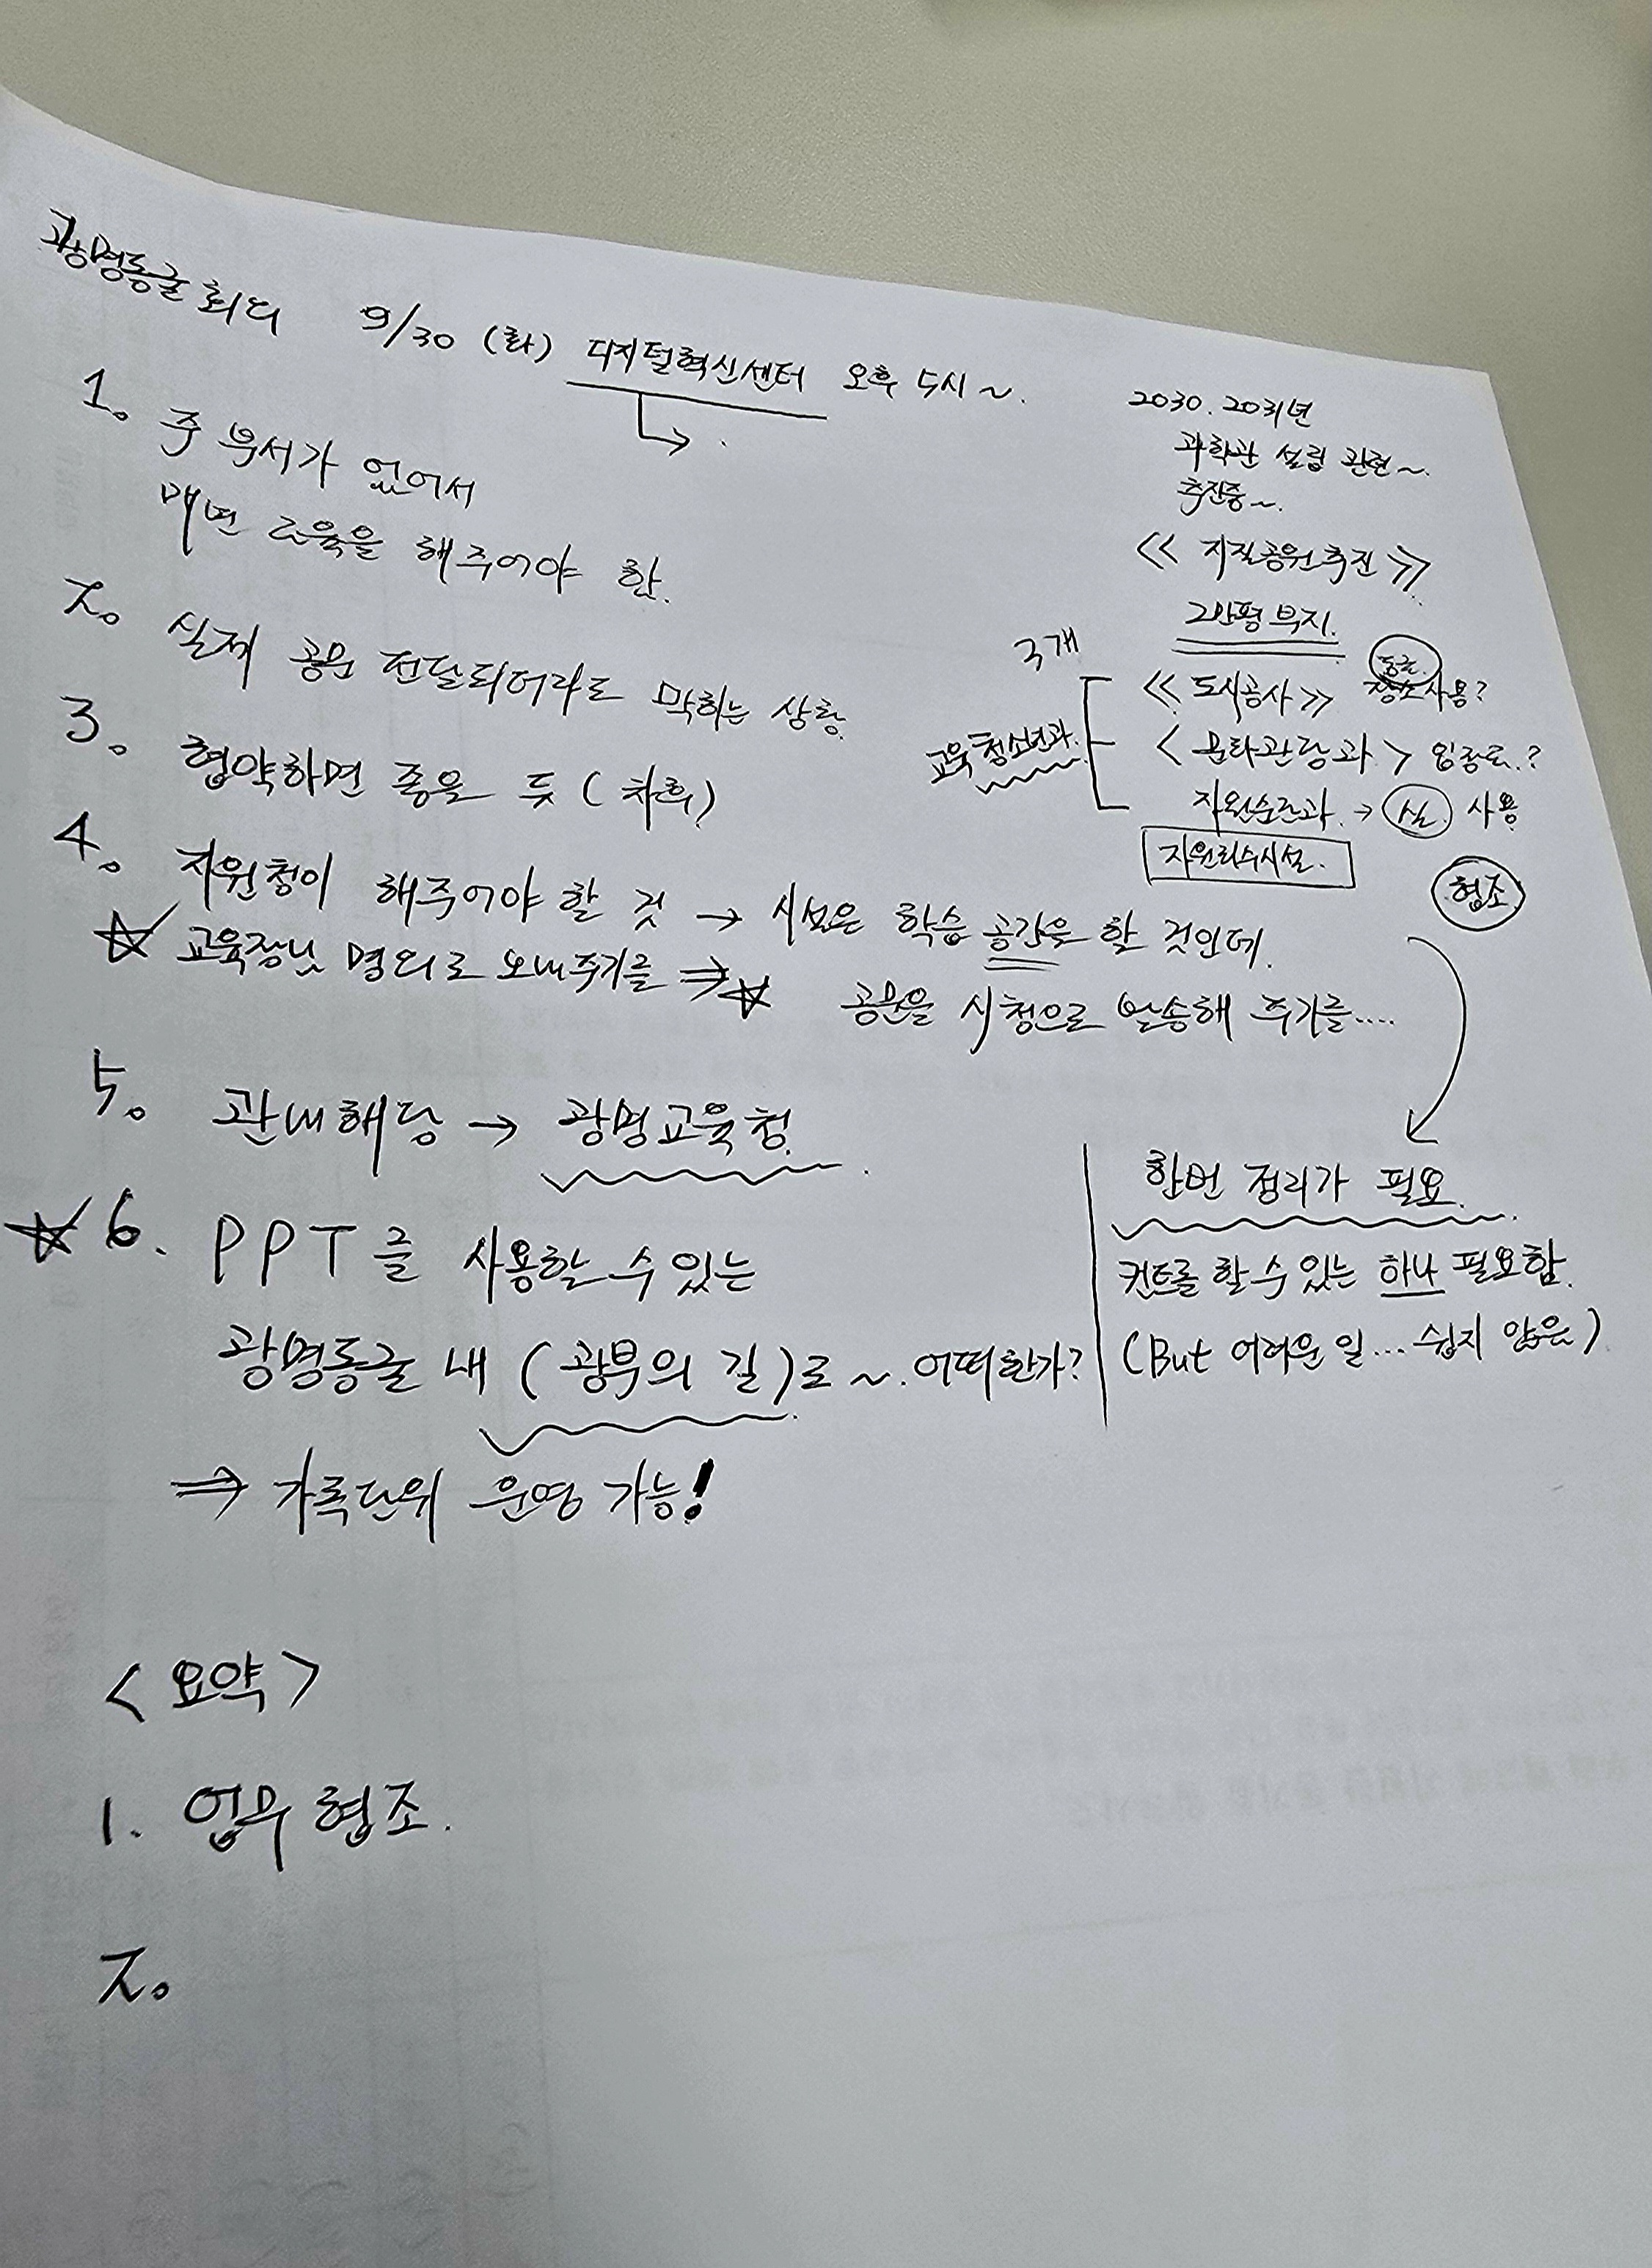 광명동굴 회의 9/30 (화) 디지털혁신센터 오후 5시~.
1. 주 부서가 없어서
매년 교육을 해주어야 함.
2. 실제 공문 전달되더라도 막히는 상황
3. 협약하면 좋을 듯 (차후)
4. 지원청이 해주어야 할 것 → 시설은 학습 공간을 할 것인데.
☆ 교육장님 명의로 보내주기를 ⇒ ☆ 공문을 시청으로 발송해 주기를....
5. 관내해당 → 광명교육청.
☆ 6. PPT를 사용할 수 있는
광명동굴 내 (광부의 길)로 ~. 어떠한가?
⇒ 가족단위 운영 가능!
2030. 2031년
과학관 설립 관련~.
추진중~.
≪ 지질공원추진 ≫
2만평 부지.
3개
교육청소년과.
동굴.
≪ 도시공사 ≫ 장소사용?
< 문화관광과 > 입장료.?
자원순환과. → 실. 사용
자원회수시설.
협조.
한번 정리가 필요.
컨트롤 할 수 있는 하나 필요함.
(But 어려운 일... 쉽지 않음)
< 요약 >
1. 업무 협조.
2.